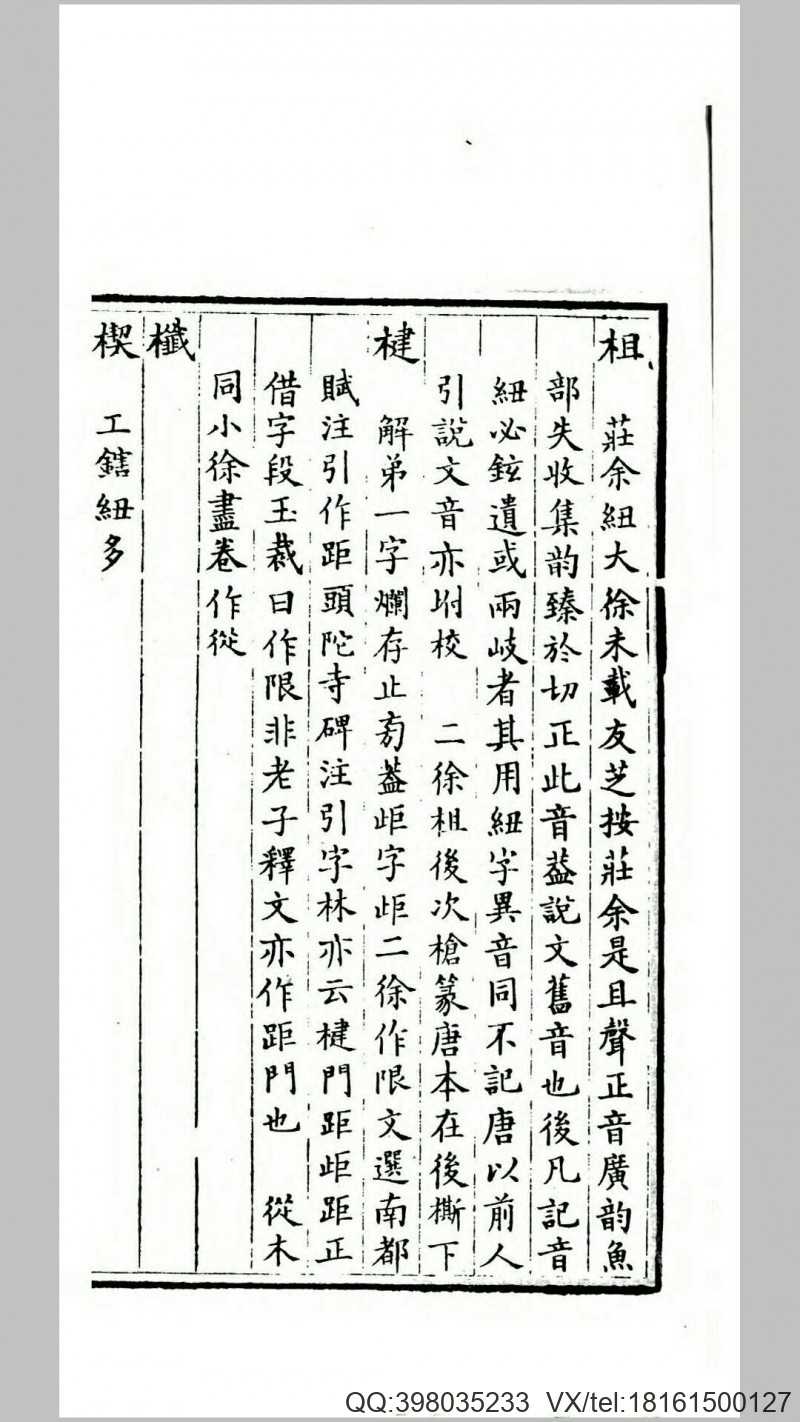 柤 莊余紐大徐未載友芝按莊余是且聲正音廣韵魚
部失收集韵臻於切正此音葢說文舊音也後凡記音
紐必鉉遺或兩歧者其用紐字異音同不記唐以前人
引說文音亦坿校 二徐柤後次槍篆唐本在後㯕下
楗 解弟一字爛存止㫄葢歫字歫二徐作限文選南都
賦注引作距頭陀寺碑注引字林亦云楗門距歫距正
借字段玉裁曰作限非老子釋文亦作距門也 從木
同小徐盡卷作從
櫼
楔 工鎋紐多
QQ:398035233 VX/tel:18161500127